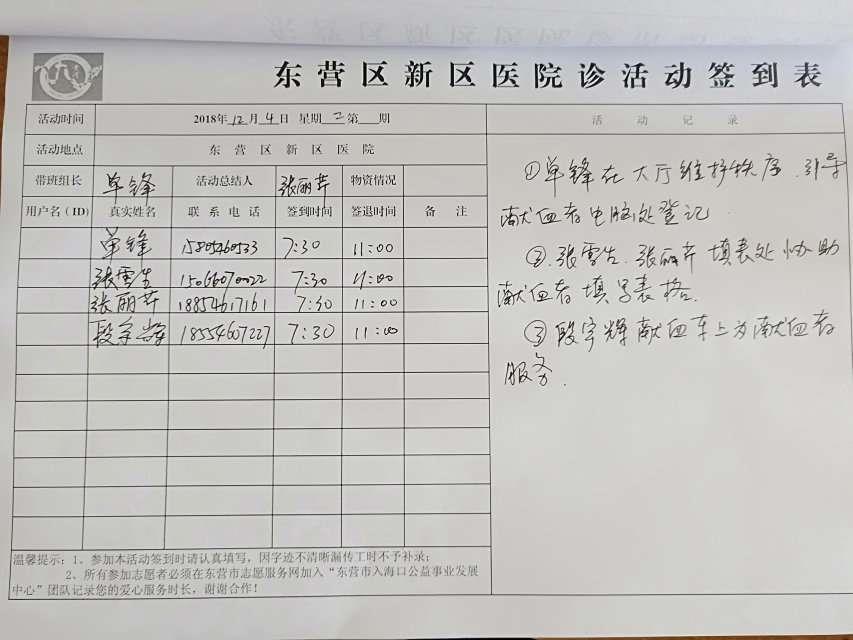 东营区新区医院诊活动签到表
活动时间 2018年12月4日 星期二第 期 活动记录
活动地点 东营区新区医院
带班组长 单锋 活动总结人 张丽芹 物资情况
用户名(ID) 真实姓名 联系电话 签到时间 签退时间 备注
单锋 7:30 11:00
张雪生 15066070022 7:30 11:00
张丽芹 18854617161 7:30 11:00
段宇辉 18554607227 7:30 11:00
①单锋在大厅维持秩序、引导
献血者电脑处登记.
②、张雪生、张丽芹填表处协助
献血者填写表格.
③段宇辉献血车上为献血者
服务.
温馨提示：1、参加本活动签到时请认真填写，因字迹不清晰漏传工时不予补录；
2、所有参加志愿者必须在东营市志愿服务网加入“东营市入海口公益事业发展
中心”团队记录您的爱心服务时长，谢谢合作！